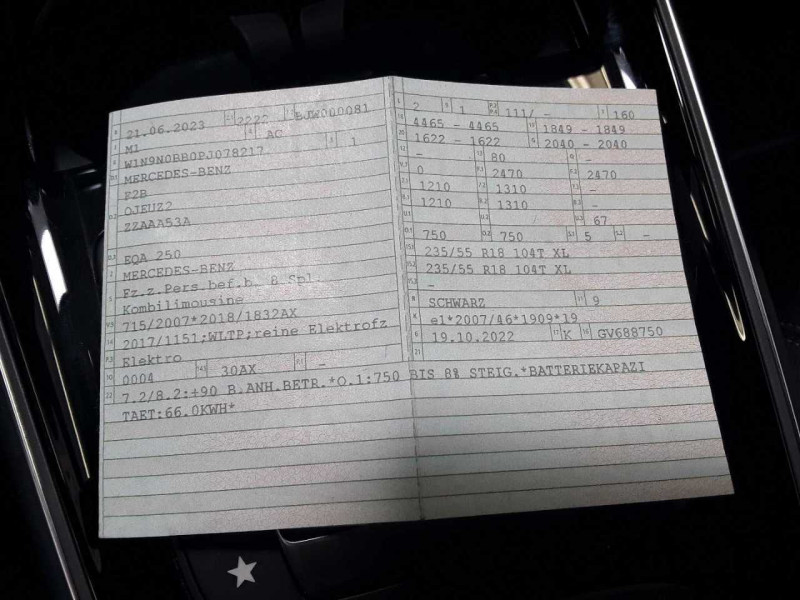 21.06.2023 2222 BJW000081
M1 AC
W1N9N0BB0PJ078217 1
MERCEDES-BENZ
F2B
OJEUZ2
ZZAAA53A
EQA 250
MERCEDES-BENZ
Fz.z.Pers.bef.b. 8 Spl.
Kombilimousine
715/2007*2018/1832AX
2017/1151;WLTP;reine Elektrofz
Elektro
0004 30AX -
2 1 111/ - 160
4465 - 4465 1849 - 1849
1622 - 1622 2040 - 2040
- 80 -
0 2470 2470
1210 1310 -
1210 1310 -
67
750 750 5 -
235/55 R18 104T XL
235/55 R18 104T XL
-
SCHWARZ 9
e1*2007/46*1909*19
19.10.2022 K GV688750
21
22 7.2/8.2:+90 B.ANH.BETR.*O.1:750 BIS 8% STEIG.*BATTERIEKAPAZI
TAET:66.0KWH*